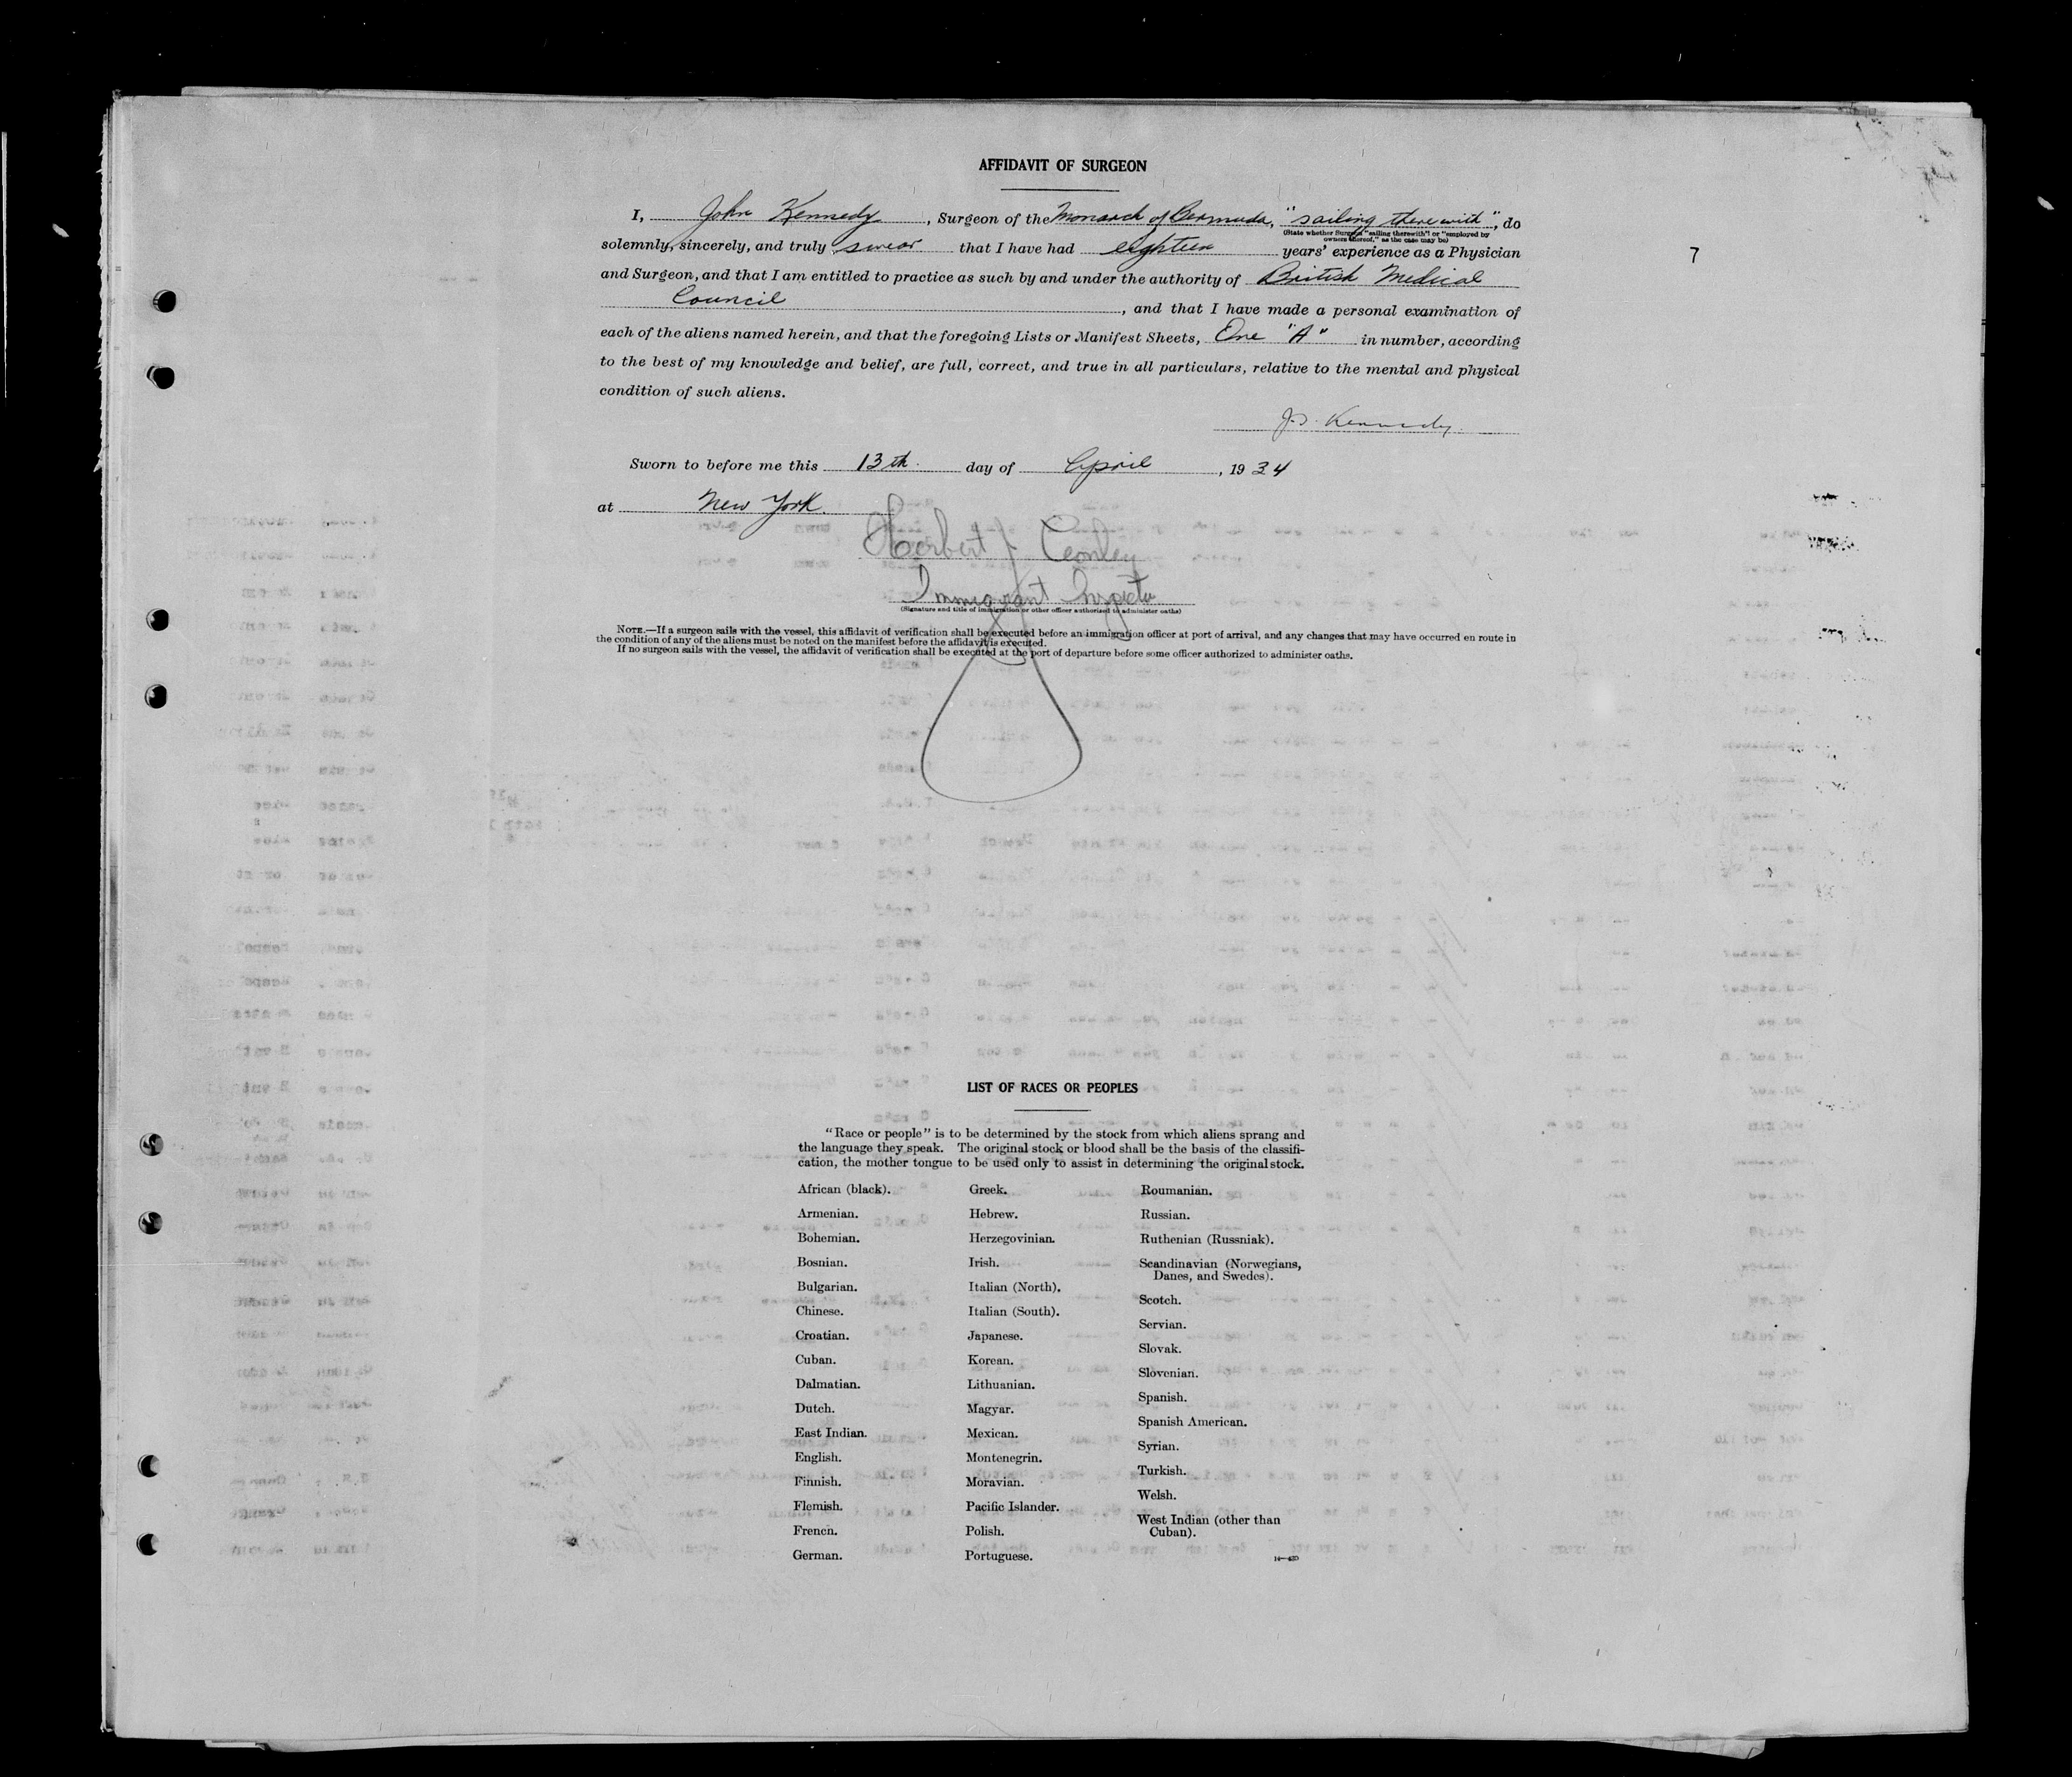 AFFIDAVIT OF SURGEON
I, John Kennedy, Surgeon of the Monarch of Bermuda, "sailing therewith", do
(State whether Surgeon "sailing therewith" or "employed by
owners thereof," as the case may be)
solemnly, sincerely, and truly swear that I have had eighteen years' experience as a Physician
and Surgeon, and that I am entitled to practice as such by and under the authority of British Medical
Council, and that I have made a personal examination of
each of the aliens named herein, and that the foregoing Lists or Manifest Sheets, One "A" in number, according
to the best of my knowledge and belief, are full, correct, and true in all particulars, relative to the mental and physical
condition of such aliens.
7
Kennedy
Sworn to before me this 13th day of April, 1934
at New York.
Herbert J
Immigrant Inspector
(Signature and title of immigration or other officer authorized to administer oaths)
NOTE.—If a surgeon sails with the vessel, this affidavit of verification shall be executed before an immigration officer at port of arrival, and any changes that may have occurred en route in
the condition of any of the aliens must be noted on the manifest before the affidavit is executed.
If no surgeon sails with the vessel, the affidavit of verification shall be executed at the port of departure before some officer authorized to administer oaths.
LIST OF RACES OR PEOPLES
"Race or people" is to be determined by the stock from which aliens sprang and
the language they speak. The original stock or blood shall be the basis of the classifi-
cation, the mother tongue to be used only to assist in determining the original stock.
African (black).
Armenian.
Bohemian.
Bosnian.
Bulgarian.
Chinese.
Croatian.
Cuban.
Dalmatian.
Dutch.
East Indian.
English.
Finnish.
Flemish.
French.
German.
Greek.
Hebrew.
Herzegovinian.
Irish.
Italian (North).
Italian (South).
Japanese.
Korean.
Lithuanian.
Magyar.
Mexican.
Montenegrin.
Moravian.
Pacific Islander.
Polish.
Portuguese.
Roumanian.
Russian.
Ruthenian (Russniak).
Scandinavian (Norwegians,
Danes, and Swedes).
Scotch.
Servian.
Slovak.
Slovenian.
Spanish.
Spanish American.
Syrian.
Turkish.
Welsh.
West Indian (other than
Cuban).